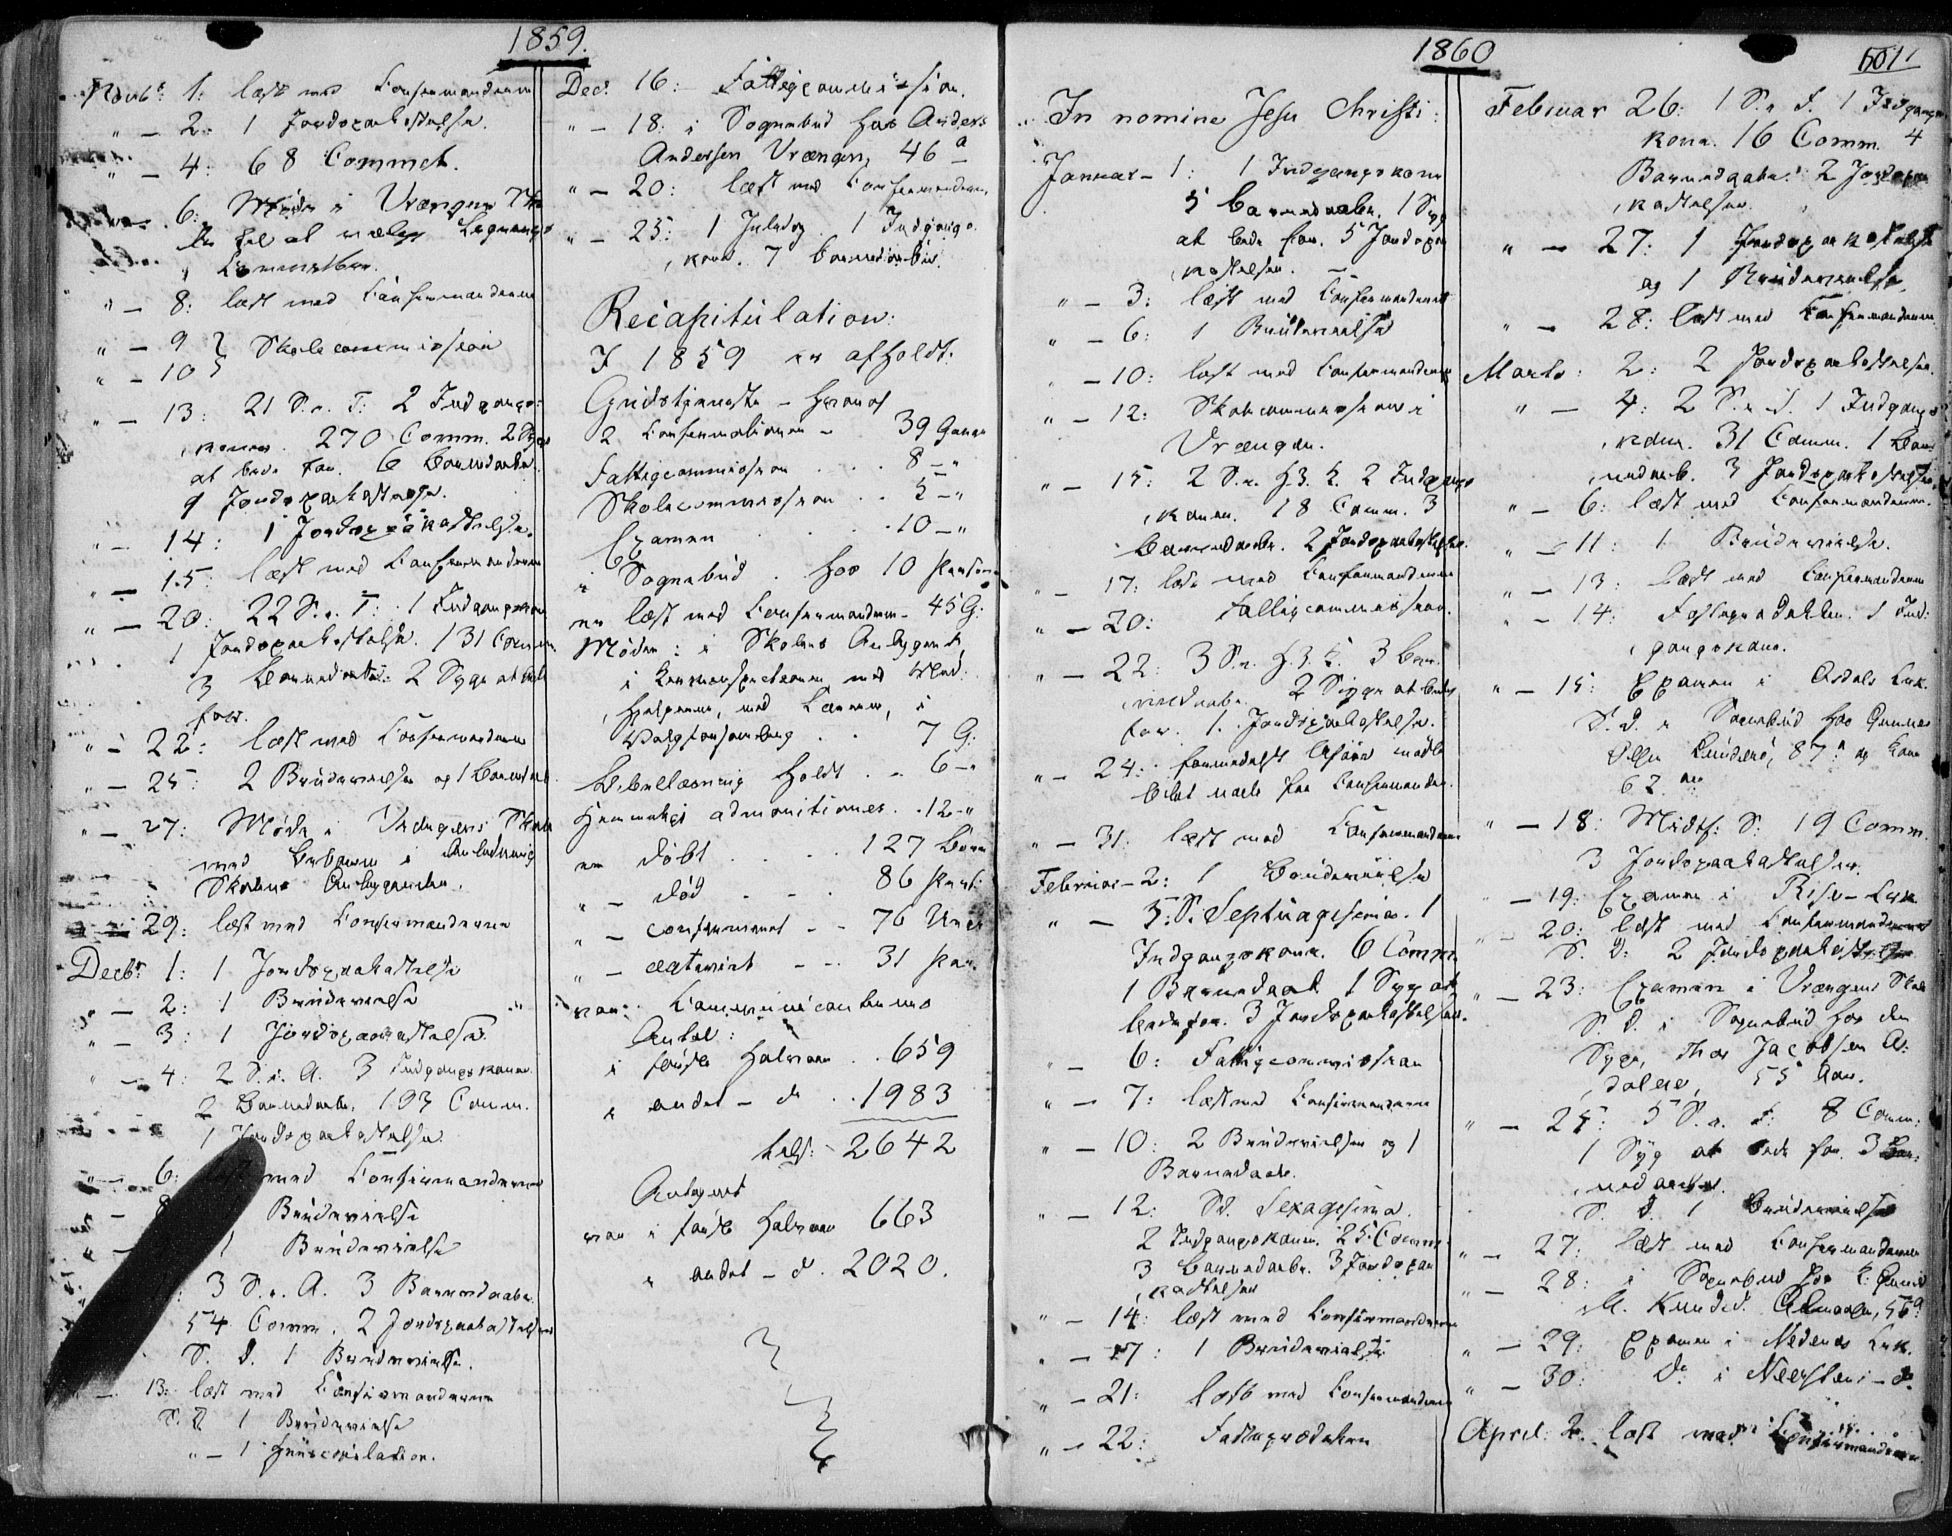 1859.
Novbr. 1: læst med Confirmanderne
" - 2: 1 Jordspaakastelse.
" - 4: 68 Commct.
" - 6: Møde i Vrængen
til at vælge Lignings
Commission.
" - 8: læst med Confirmanderne
" - 9 } Skolecommission
" - 10
" - 13: 21 S. e. T. 2 Indgangs:
koner. 270 Comm. 2 Syge
at bede for. 6 Barnedaabe.
9 Jordspaakastelse.
" - 14: 1 Jordspaakastelse.
" - 15: læst med Confirmanderne
" - 20: 22 S. e. T. 1 Indgangskone
1 Jordspaakastelse. 131 Comm.
3 Barnedaabe. 2 Syge at bede
for.
" - 22: læst med Confirmanderne
" - 25: 2 Brudevielse og 1 Barnedaab
" - 27: Møde i Vrængens Skole
med Beboerne i Anledning
Skolens Anbyggende.
" - 29: læst med Confirmanderne
Decbr. 1: 1 Jordspaakastelse
" - 2: 1 Brudevielse
" - 3: 1 Jordspaakastelse
" - 4: 2 S. i A. 3 Indgangskoner.
2 Barnedaabe. 193 Comm.
1 Jordspaakastelse.
" - 6: med Confirmanderne
" - 8 Brudevielse
1 Brudevielse
3 S. i A. 3 Barnedaabe.
54 Comm. 2 Jordspaakastelser
S. D. 1 Brudevielse.
" - 13: læst med Confirmanderne
S. D. 1 Brudevielse
" - 1 Huuscopulation.
Dec: 16: Fattigcommission.
" - 18: i Sognebud hos Anders
Andersen Vrængen, 46 a
" - 20: læst med Confirmanderne
" - 25: 1 Juledag. 1 Indgangs-
kone. 7 Barnedaabe.
Recapitulation:
I 1859 er afholdt:
Gudstjeneste - hvoraf
2 Confirmationer - 39 Gange
Fattigcommission . . . 8 - "
Skolecommission . . 5 - "
Examen . . . 10 - "
i Sognebud . hos 10 Personer
er læst med Confirmanderne - 45 G:
Møder: i Skolens Anliggende,
med
Hjelperne, med Lærerne, i
Valgforsamling . . 7 G:
Bibellæsning holdt . . 6 - "
Hemmelige admonitioner . . 12 - "
er døbt . . . 127 Børn
" - død . . . 86 Pers:
" - confirmeret - - 76 Unge
" - copuleret - - 31 Par.
var Communicanternes
Antal:
i første Halvaar . . 659
" andet - d . . 1983
tils: - 2642
Antegnet
var i første Halvaar 663
" andet - d. 2020.
1860
501
In nomine Jesu Christi:
Januar - 1: 1 Indgangskone
5 Barnedaabe. 1 Syg
at bede for. 5 Jordspaa
kastelser.
" - 3: læst med Confirmanderne
" - 6: 1 Brudevielse
" - 10: læst med Confirmanderne
" - 12: Skolecommission i
Vrængen.
" - 15: 2 S. e. H. 3. K. 2 Indgangs
koner. 18 Comm. 3
Barnedaabe. 2 Jordspaakastelser.
" - 17: læst med Confirmanderne
" - 20: Fattigcommission.
" - 22: 3 S. e. H. 3. K. 3 Bar-
nedaabe. 2 Syge at bede
for. 1. Jordspaakastelse.
" - 24: formedelst Uføre mødte
blot nogle faa Confirmander.
" - 31: læst med Confirmanderne
Februar - 2: 1 Brudevielse
" - 5: S. Septuagesima. 1
Indgangskone. 6 Comm.
1 Barnedaab 1 Syg at
bede for. 3 Jordspaakastelser.
" - 6: Fattigcommission
" - 7: læst med Confirmanderne
" - 10: 2 Brudevielser og 1
Barnedaab.
" - 12: Sd. Sexagesima.
2 Indgangskoner. 25 Comm.
3 Barnedaabe. 3 Jordspaa
kastelser
" - 14: læst med Confirmanderne
" - 17: 1 Brudevielse
" - 21: læst med Confirmanderne
" - 22: Fasteprædiken
Februar 26: 1 S. e F. 1 Indgangs-
kone. 16 Comm. 4
Barnedaabe. 2 Jordspaa
kastelser.
" - 27: 1 Jordspaakastelse
og 1 Brudevielse.
" - 28: læst med Confirmanderne
Marts: 2: 2 Jordspaakastelser.
" - 4: 2 S. e F. 1 Indgangs
kone. 31 Comm. 1 Bar-
nedaab. 3 Jordspaakastelser.
" - 6: læst med Confirmanderne.
" - 11: 1 Brudevielse.
" - 13: læst med Confirmanderne
" - 14: Fasteprædiken. 1 Ind-
gangskone.
" - 15: Examen i Asdals Krk.
S. D. i Sognebud hos Gunner
Olsen 87 a og Kone
62 aar
" - 18: Midtf: S: 19 Comm.
3 Jordspaakastelser.
" - 19: Examen i Krk.
" - 20: læst med Confirmanderne
S. D. 2 Jordspaakastelser
" - 23: Examen i Vrængens Skole
S. D. i Sognebud hos den
Syge, Jacobsen A:
sdalen, 55 Aar.
" - 25: 5 S. e. F: 8 Comm:
1 Syg at bede for. 3 Bar-
nedaabe.
S. D. 1 Brudevielse
" - 27: læst med Confirmanderne
" - 28: i Sognebud hos
M. Knuds. 56 a
" - 29: Examen i Nedenes Krk.
" - 30: Do i - d.
April: 2. læst med Confirmanderne.